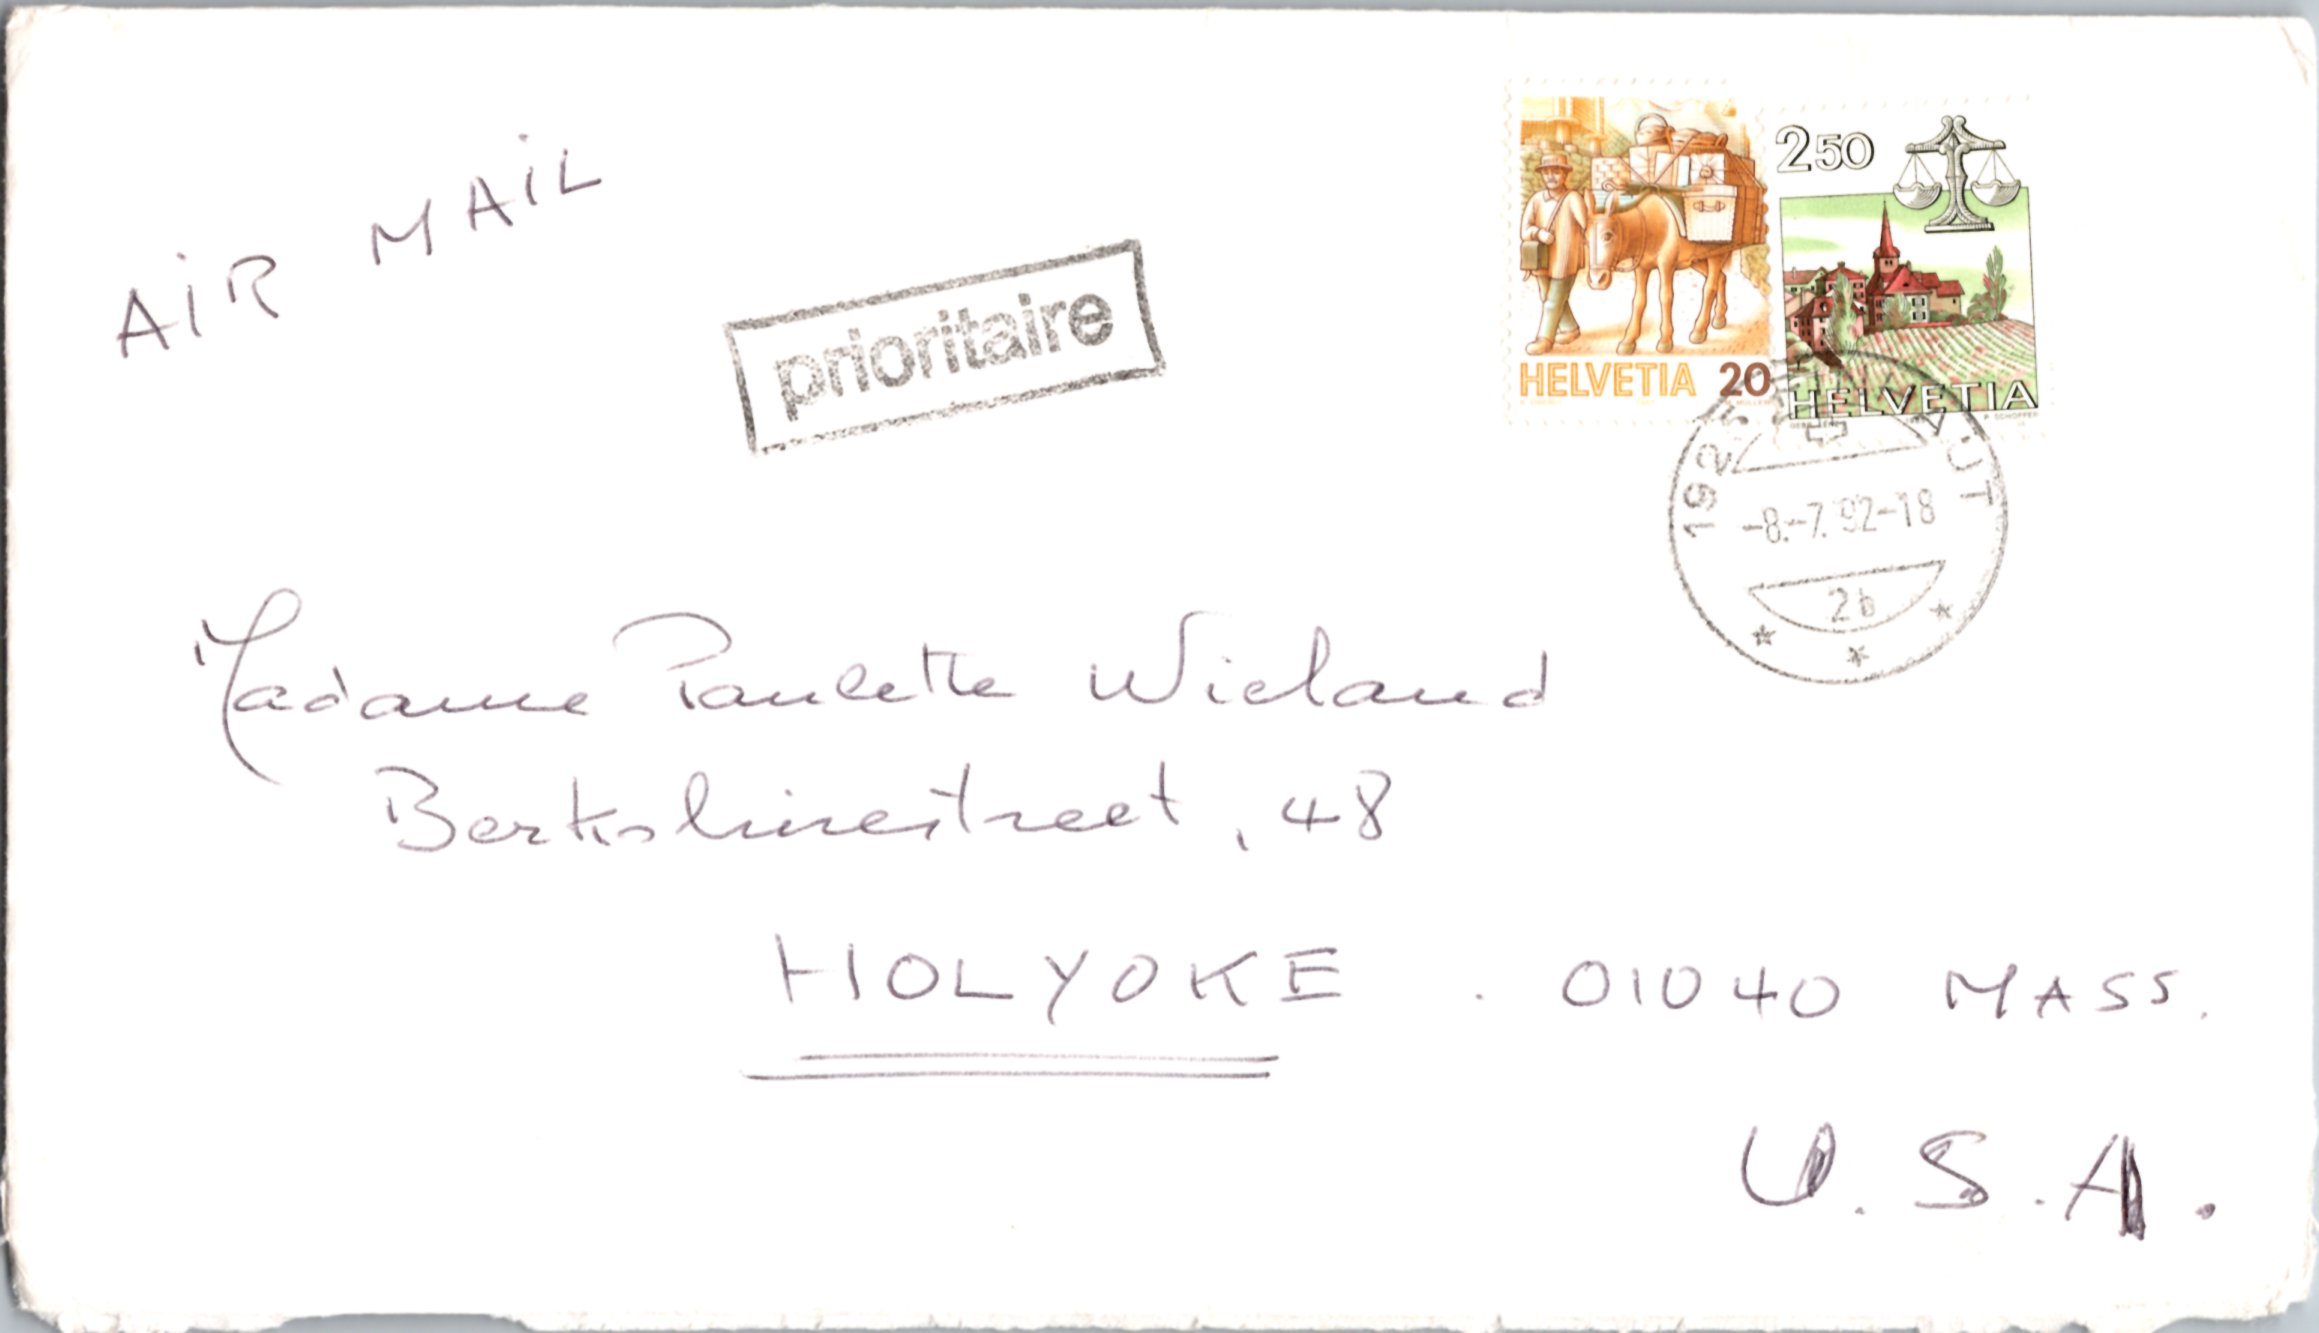 AiR MAiL
prioritaire
2 50
HELVETIA 20
HELVETIA
192
UT
-8.-7.92-18
2b
Madame Paulette Wieland
Berkshirestreet, 48
HOLYOKE . 01040 MASS.
U.S.A.